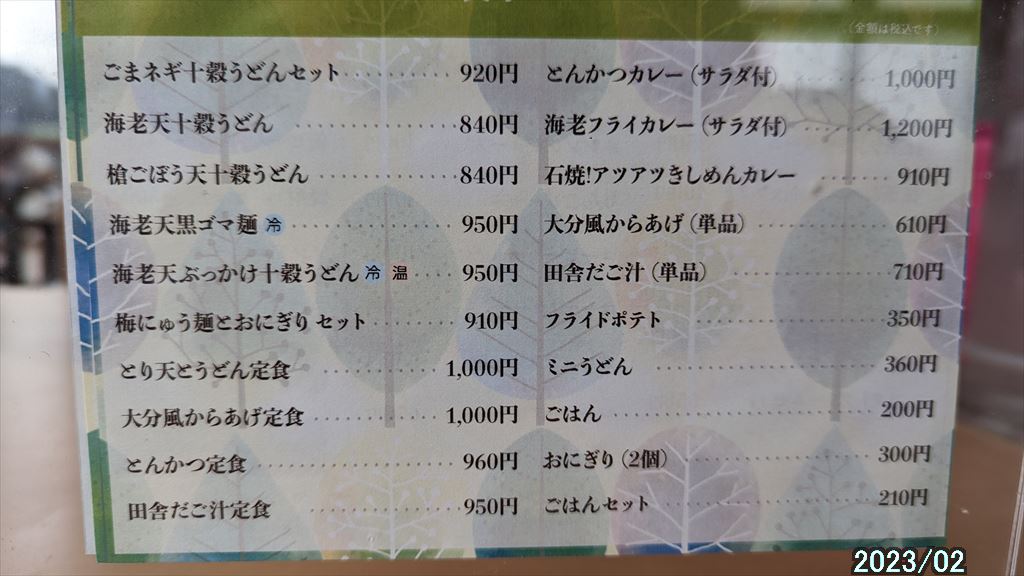 (金額は税込です)
ごまネギ十穀うどんセット 920円
海老天十穀うどん 840円
槍ごぼう天十穀うどん 840円
海老天黒ゴマ麺 冷 950円
海老天ぶっかけ十穀うどん 冷 温 950円
梅にゅう麺とおにぎり セット 910円
とり天とうどん定食 1,000円
大分風からあげ定食 1,000円
とんかつ定食 960円
田舎だご汁定食 950円
とんかつカレー(サラダ付) 1,000円
海老フライカレー(サラダ付) 1,200円
石焼!アツアツきしめんカレー 910円
大分風からあげ(単品) 610円
田舎だご汁(単品) 710円
フライドポテト 350円
ミニうどん 360円
ごはん 200円
おにぎり(2個) 300円
ごはんセット 210円
2023/02